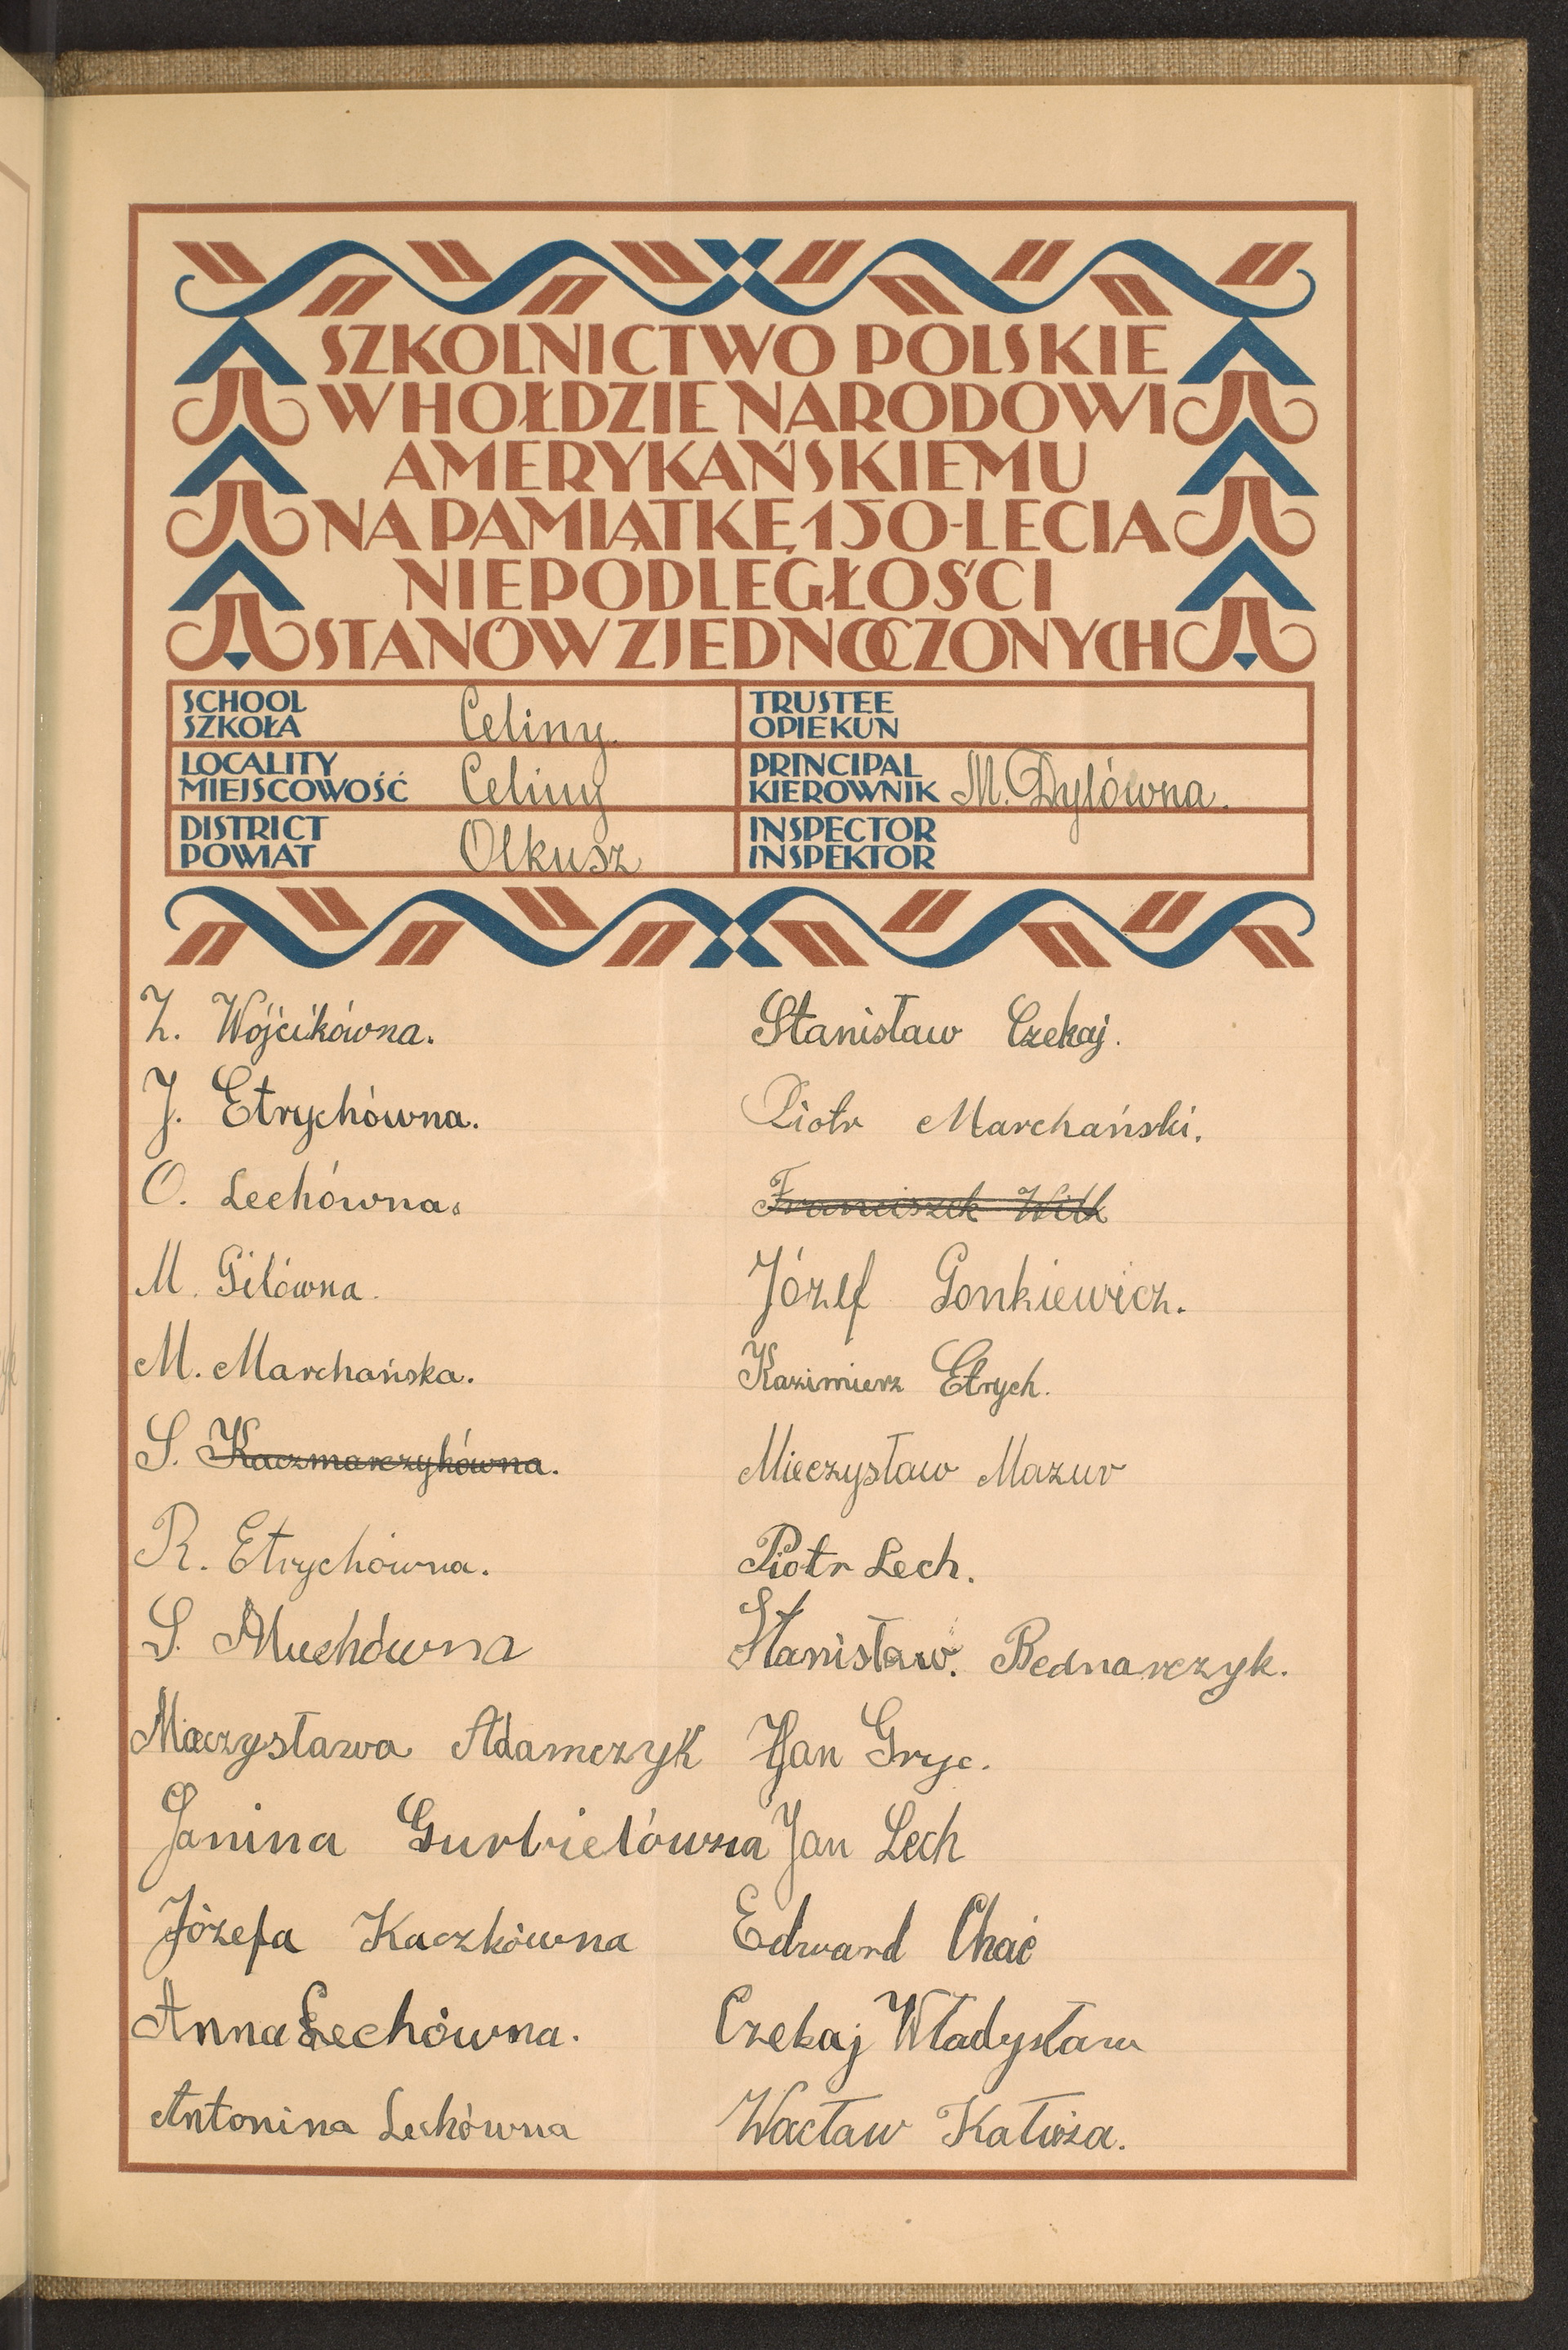 SZKOLNICTWO POLSKIE
W HOŁDZIE NARODOWI
AMERYKAŃSKIEMU
NA PAMIĄTKĘ 150-LECIA
NIEPODLEGŁOŚCI
STANÓW ZJEDNOCZONYCH
SCHOOL
SZKOŁA Celiny
TRUSTEE
OPIEKUN
LOCALITY
MIEJSCOWOŚĆ Celiny
PRINCIPAL
KIEROWNIK M. Dylówna.
DISTRICT
POWIAT Olkusz
INSPECTOR
INSPEKTOR
Z. Wójcikówna.
J. Etrychówna.
O. Lechówna.
M. Gilówna.
M. Marchańska.
S. Kaczmarczykówna.
R. Etrychówna.
S. Muchówna
Mieczysława Adamczyk
Janina Gurbielówna
Józefa Kaczkówna
Anna Lechówna.
Antonina Lechówna
Stanisław Czekaj.
Piotr Marchański.
Franciszek Wilk
Józef Gonkiewicz.
Kazimierz Etrych.
Mieczysław Mazur
Piotr Lech.
Stanisław. Bednarczyk.
Jan Gryc.
Jan Lech
Edward Chać
Czekaj Władysław
Wacław Kałuża.